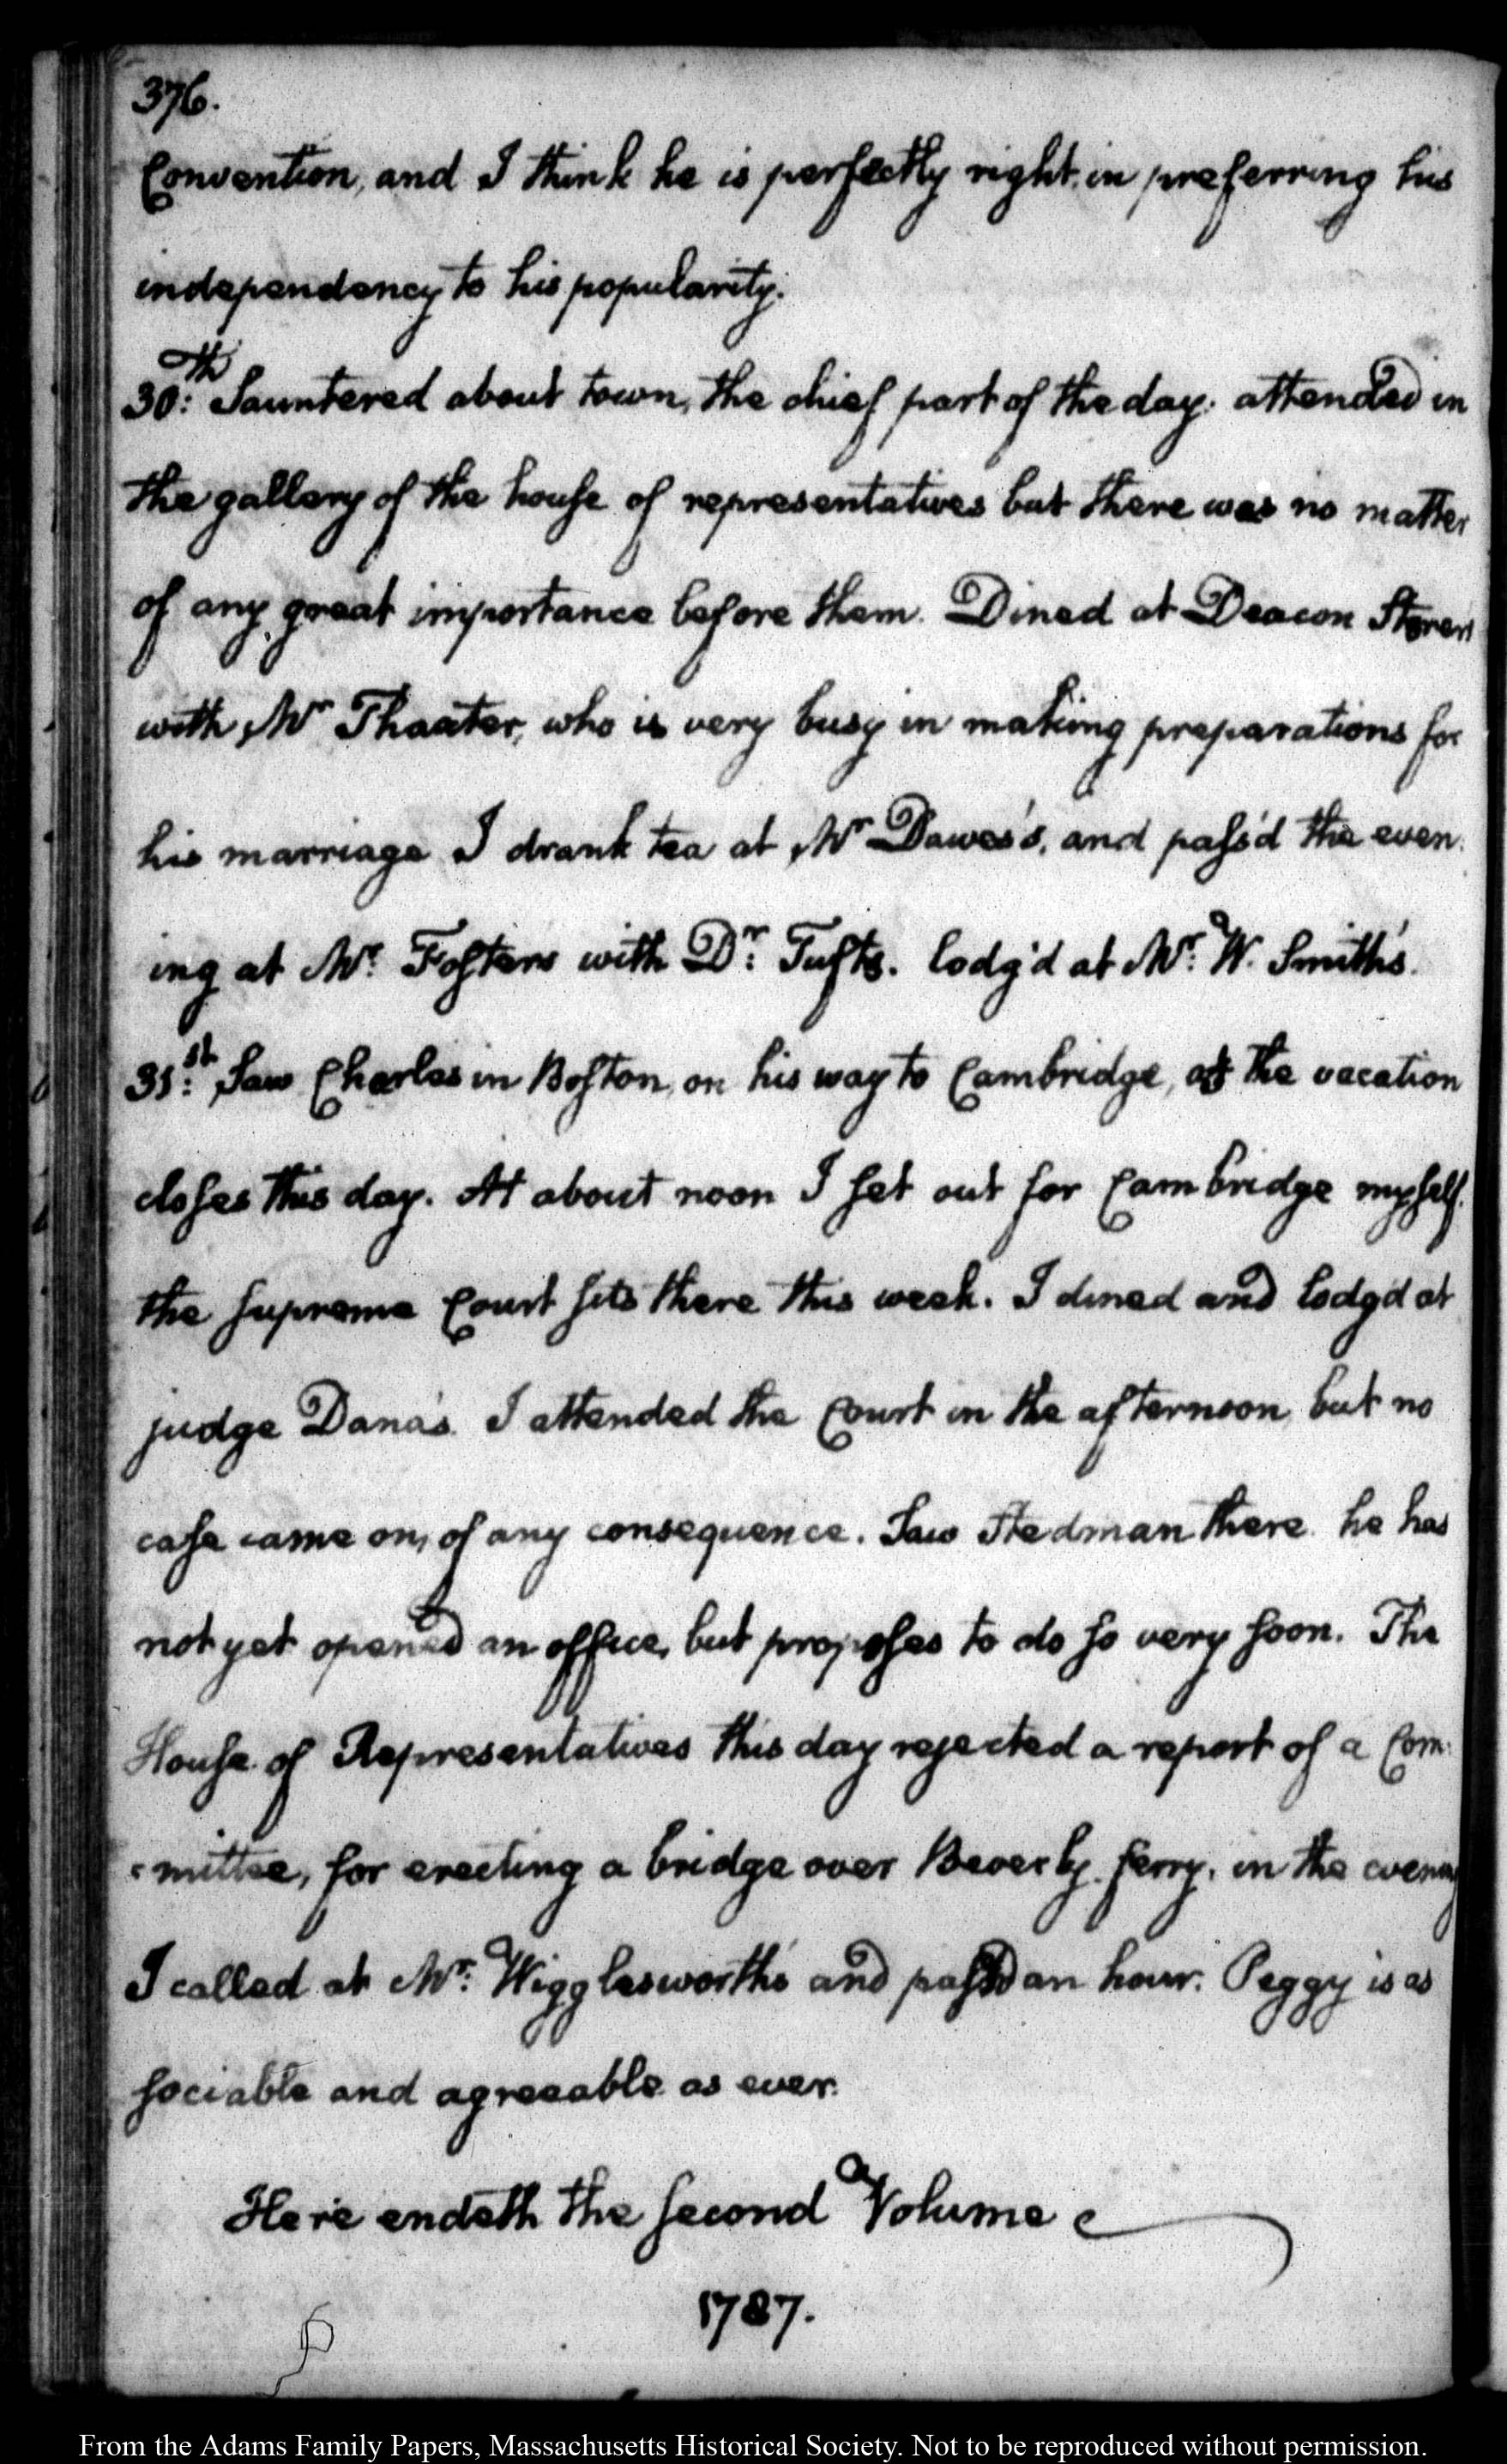 376.
Convention, and I think he is perfectly right, in preferring his
independency to his popularity.
30:th Sauntered about town, the chief part of the day. attended in
the gallery of the house of representatives but there was no matter
of any great importance before them. Dined at Deacon Storers
with Mr Thaxter, who is very busy in making preparations for
his marriage I drank tea at Mr Dawes's, and pass'd the even-
ing at Mr. Fosters with Dr. Tufts. lodg'd at Mr. W. Smith's.
31:st Saw Charles in Boston, on his way to Cambridge, as the vacation
closes this day. At about noon I set out for Cambridge myself.
the supreme Court sits there this week. I dined and lodg'd at
judge Dana's. I attended the Court in the afternoon, but no
case came on, of any consequence. Saw Stedman there. he has
not yet opened an office, but proposes to do so very soon. The
House of Representatives this day rejected a report of a Com-
-mittee, for erecting a bridge over Beverly ferry. in the evening
I called at Mr: Wigglesworth's and pass'd an hour. Peggy is as
sociable and agreeable as ever.
Here endeth the second Volume
1787.
From the Adams Family Papers, Massachusetts Historical Society. Not to be reproduced without permission.